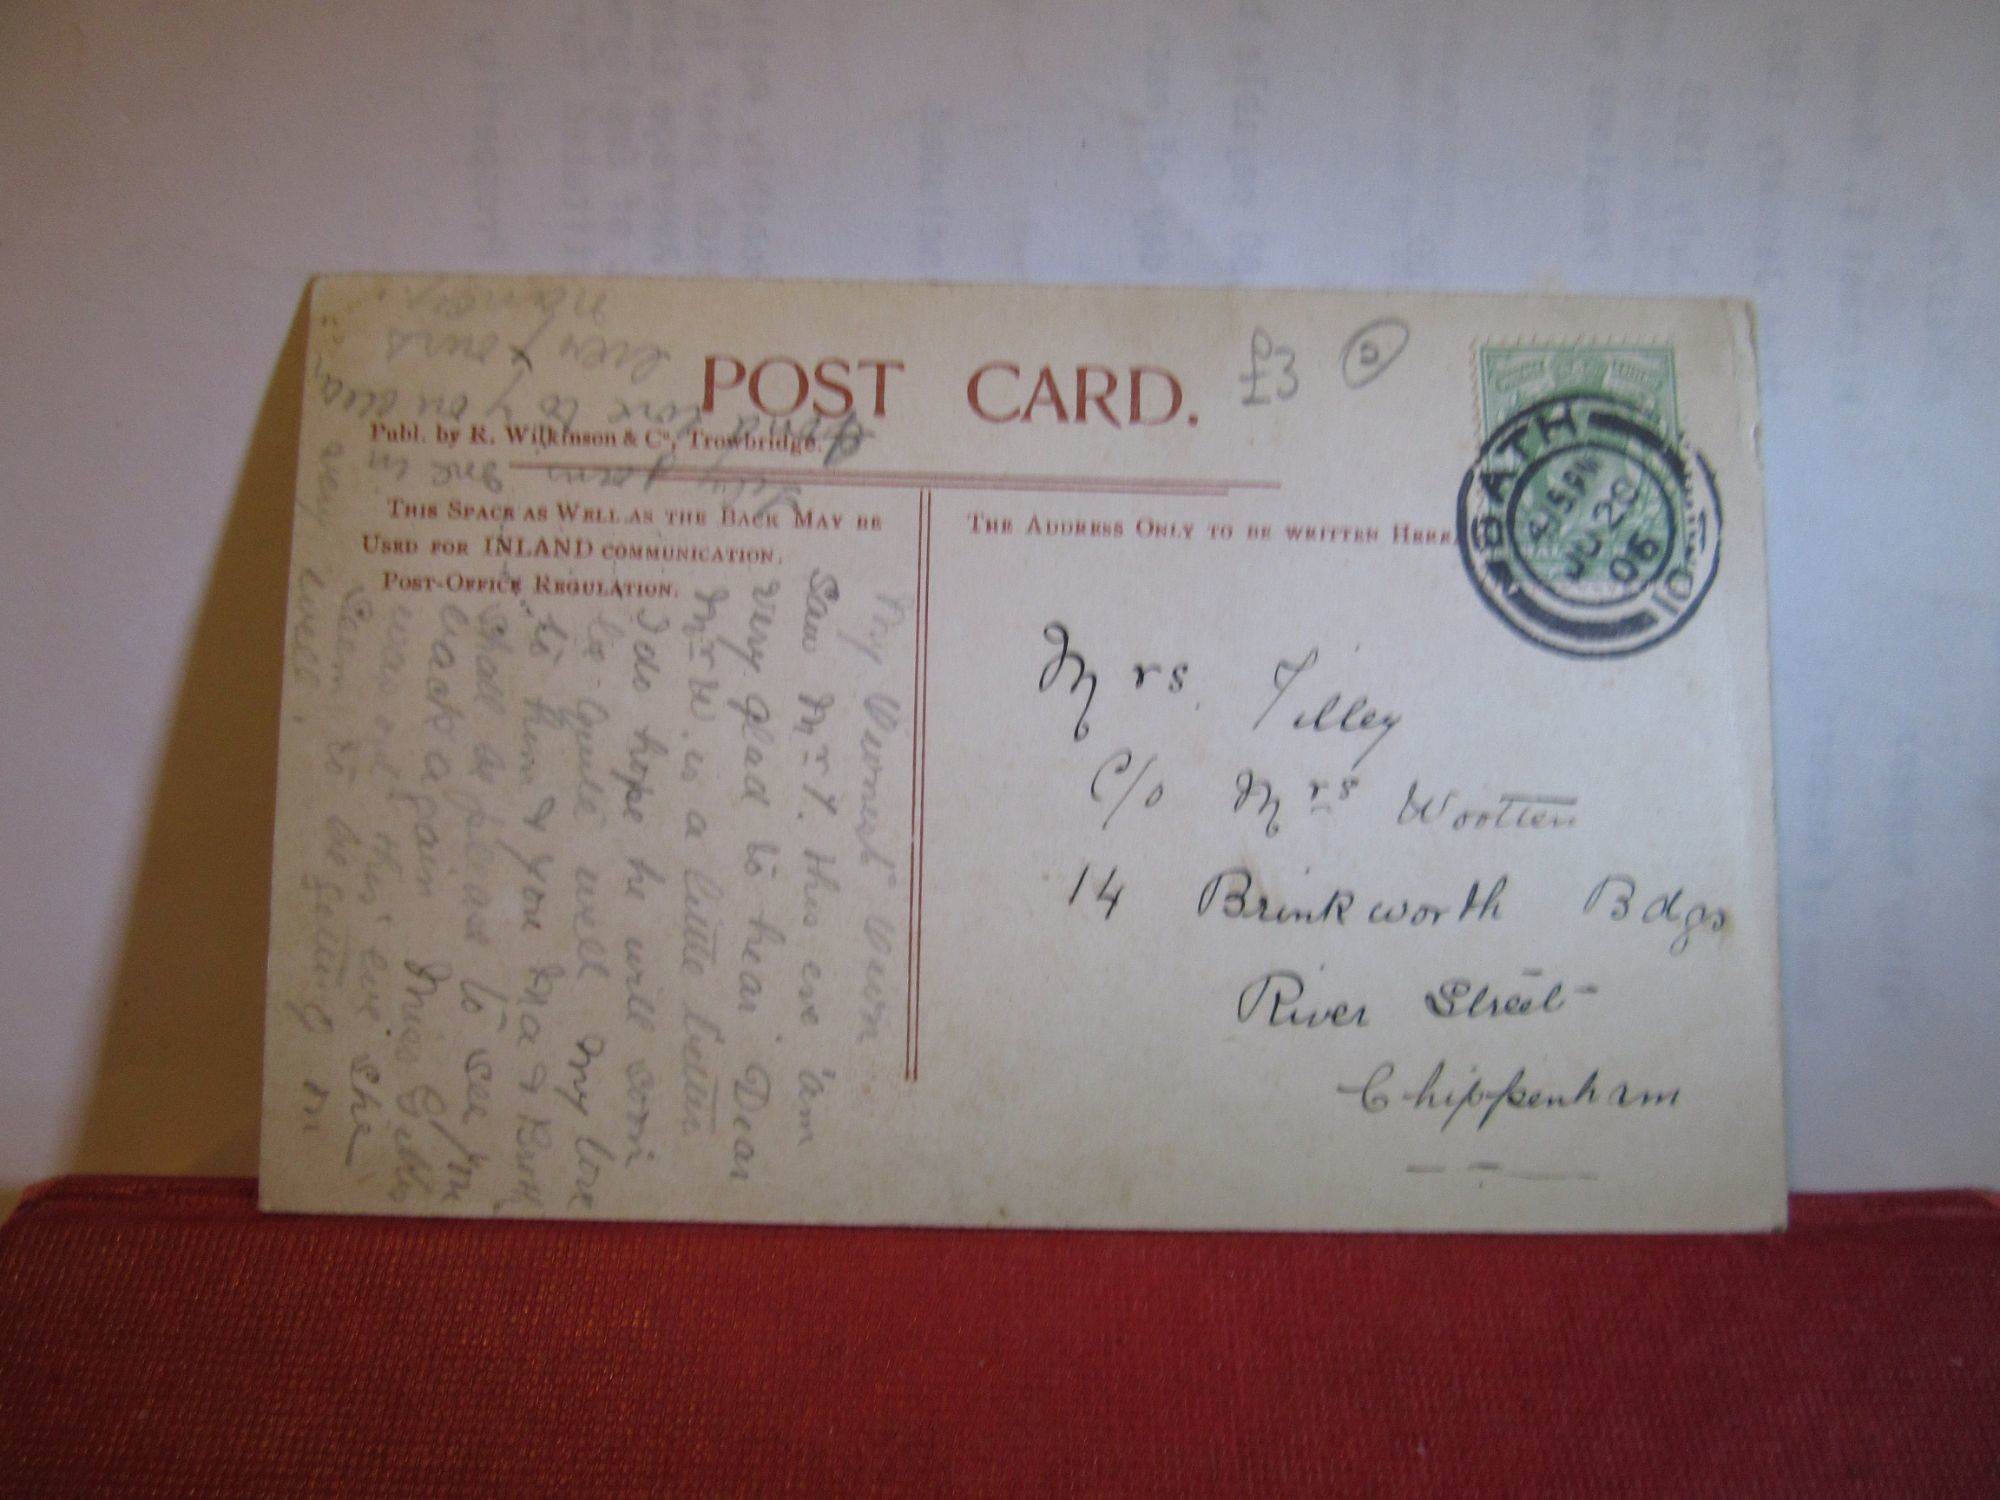 POST CARD.
£3 5
Publ. by R. Wilkinson & Co, Trowbridge.
THIS SPACE AS WELL AS THE BACK MAY BE
USED FOR INLAND COMMUNICATION.
POST-OFFICE REGULATION.
THE ADDRESS ONLY TO BE WRITTEN HERE
BATH
4.15 PM
JU 20
06
Mrs. Tilley
C/o Mrs Wootten
14 Brinkworth Bdgs
River Street
Chippenham
My own
Saw Mr T. this eve 'am
very glad to hear Dear
Mr W. is a little better
I do hope he will soon
be quite well My love
to him & you Ma & Broth
Shall be please to see you
back again Miss Gibbs
was out this eve she
seem to be getting on
very well.
fond love to you dear
ever yours